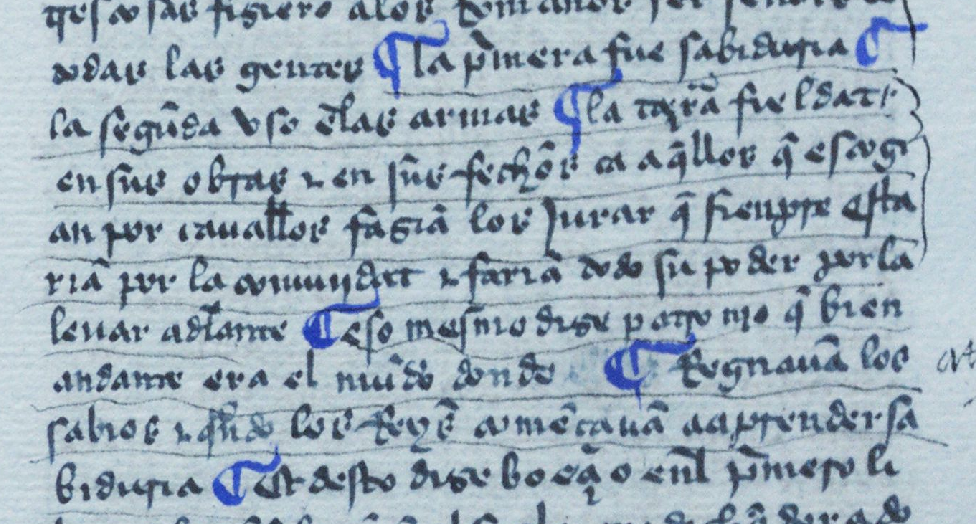 cosas fizierõ a los Romanos ser señores
todas las gentes ¶ la p̃mera fue sabiduria ¶
la segũda vso ẽlas armas ¶ la tr̃çera fieldat
en sus obras ⁊ en sus fechõs ca aq̃llos q̃ escogi
an por cauall̃os faziã los jurar q̃ sienpre esta
riã por la comunidat ⁊ fariã todo su poder por la
leuar adl̃ante ¶ eso mesmo dize q̃ bien
andante era el mũdo donde ¶ Regnauã los
sabios ⁊ q̃ndo los Reyẽs comẽçauã a aprender sa
biduria ¶ Et desto dize boeçio enl p̃mero li